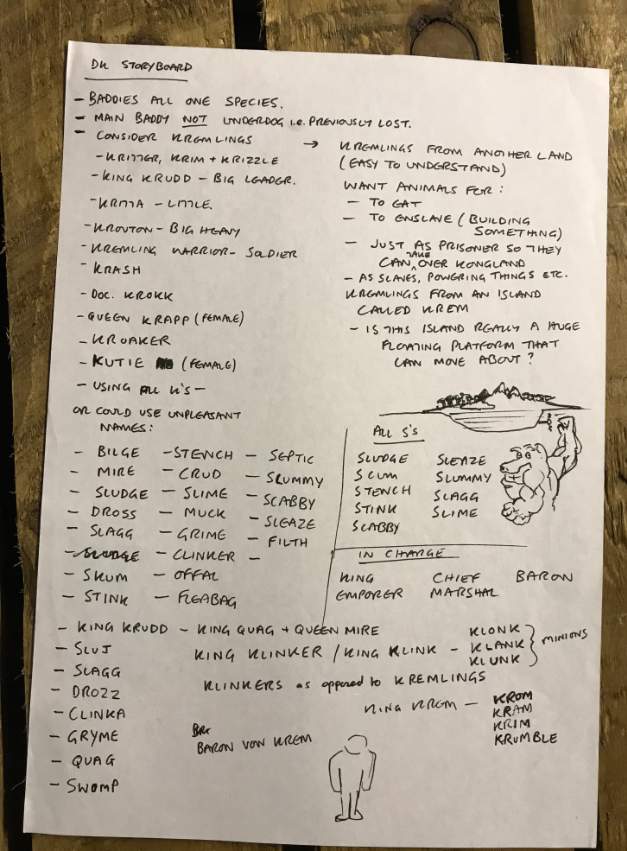 DK STORYBOARD
- BADDIES ALL ONE SPECIES.
- MAIN BADDY NOT UNDERDOG i.e. PREVIOUSLY LOST.
- CONSIDER KREMLINGS
- KRITTER, KRIM + KRIZZLE
- KING KRUDD - BIG LEADER.
- KRITTA - LITTLE.
- KROUTON - BIG HEAVY
- KREMLING WARRIOR - SOLDIER
- KRASH
- DOC. KROKK
- QUEEN KRAPP (FEMALE)
- KROAKER
- KUTIE (FEMALE)
- USING ALL K'S -
OR COULD USE UNPLEASANT
NAMES:
→ KREMLINGS FROM ANOTHER LAND
(EASY TO UNDERSTAND)
WANT ANIMALS FOR:
- TO EAT
- TO ENSLAVE (BUILDING
SOMETHING)
- JUST AS PRISONER SO THEY
CAN TAKE OVER KONGLAND
- AS SLAVES, POWERING THINGS ETC.
KREMLINGS FROM AN ISLAND
CALLED KREM
- IS THIS ISLAND REALLY A HUGE
FLOATING PLATFORM THAT
CAN MOVE ABOUT?
- BILGE - STENCH - SEPTIC
- MIRE - CRUD - SLUMMY
- SLUDGE - SLIME - SCABBY
- DROSS - MUCK - SLEAZE
- SLAGG - GRIME - FILTH
- SLUDGE - CLINKER -
- SKUM - OFFAL
- STINK - FLEABAG
ALL S'S
SLUDGE SLEAZE
SCUM SLUMMY
STENCH SLAGG
STINK SLIME
SCABBY
IN CHARGE
KING CHIEF BARON
EMPORER MARSHAL
- KING KRUDD - KING QUAG + QUEEN MIRE
- SLUJ
- SLAGG
- DROZZ
- CLINKA
- GRYME
- QUAG
- SWOMP
KING KLINKER / KING KLINK - KLONK
KLANK
KLUNK
MINIONS
KLINKERS as opposed to KREMLINGS
KING KREM - KROM
KRAM
KRIM
KRUMBLE
BARON VON KREM